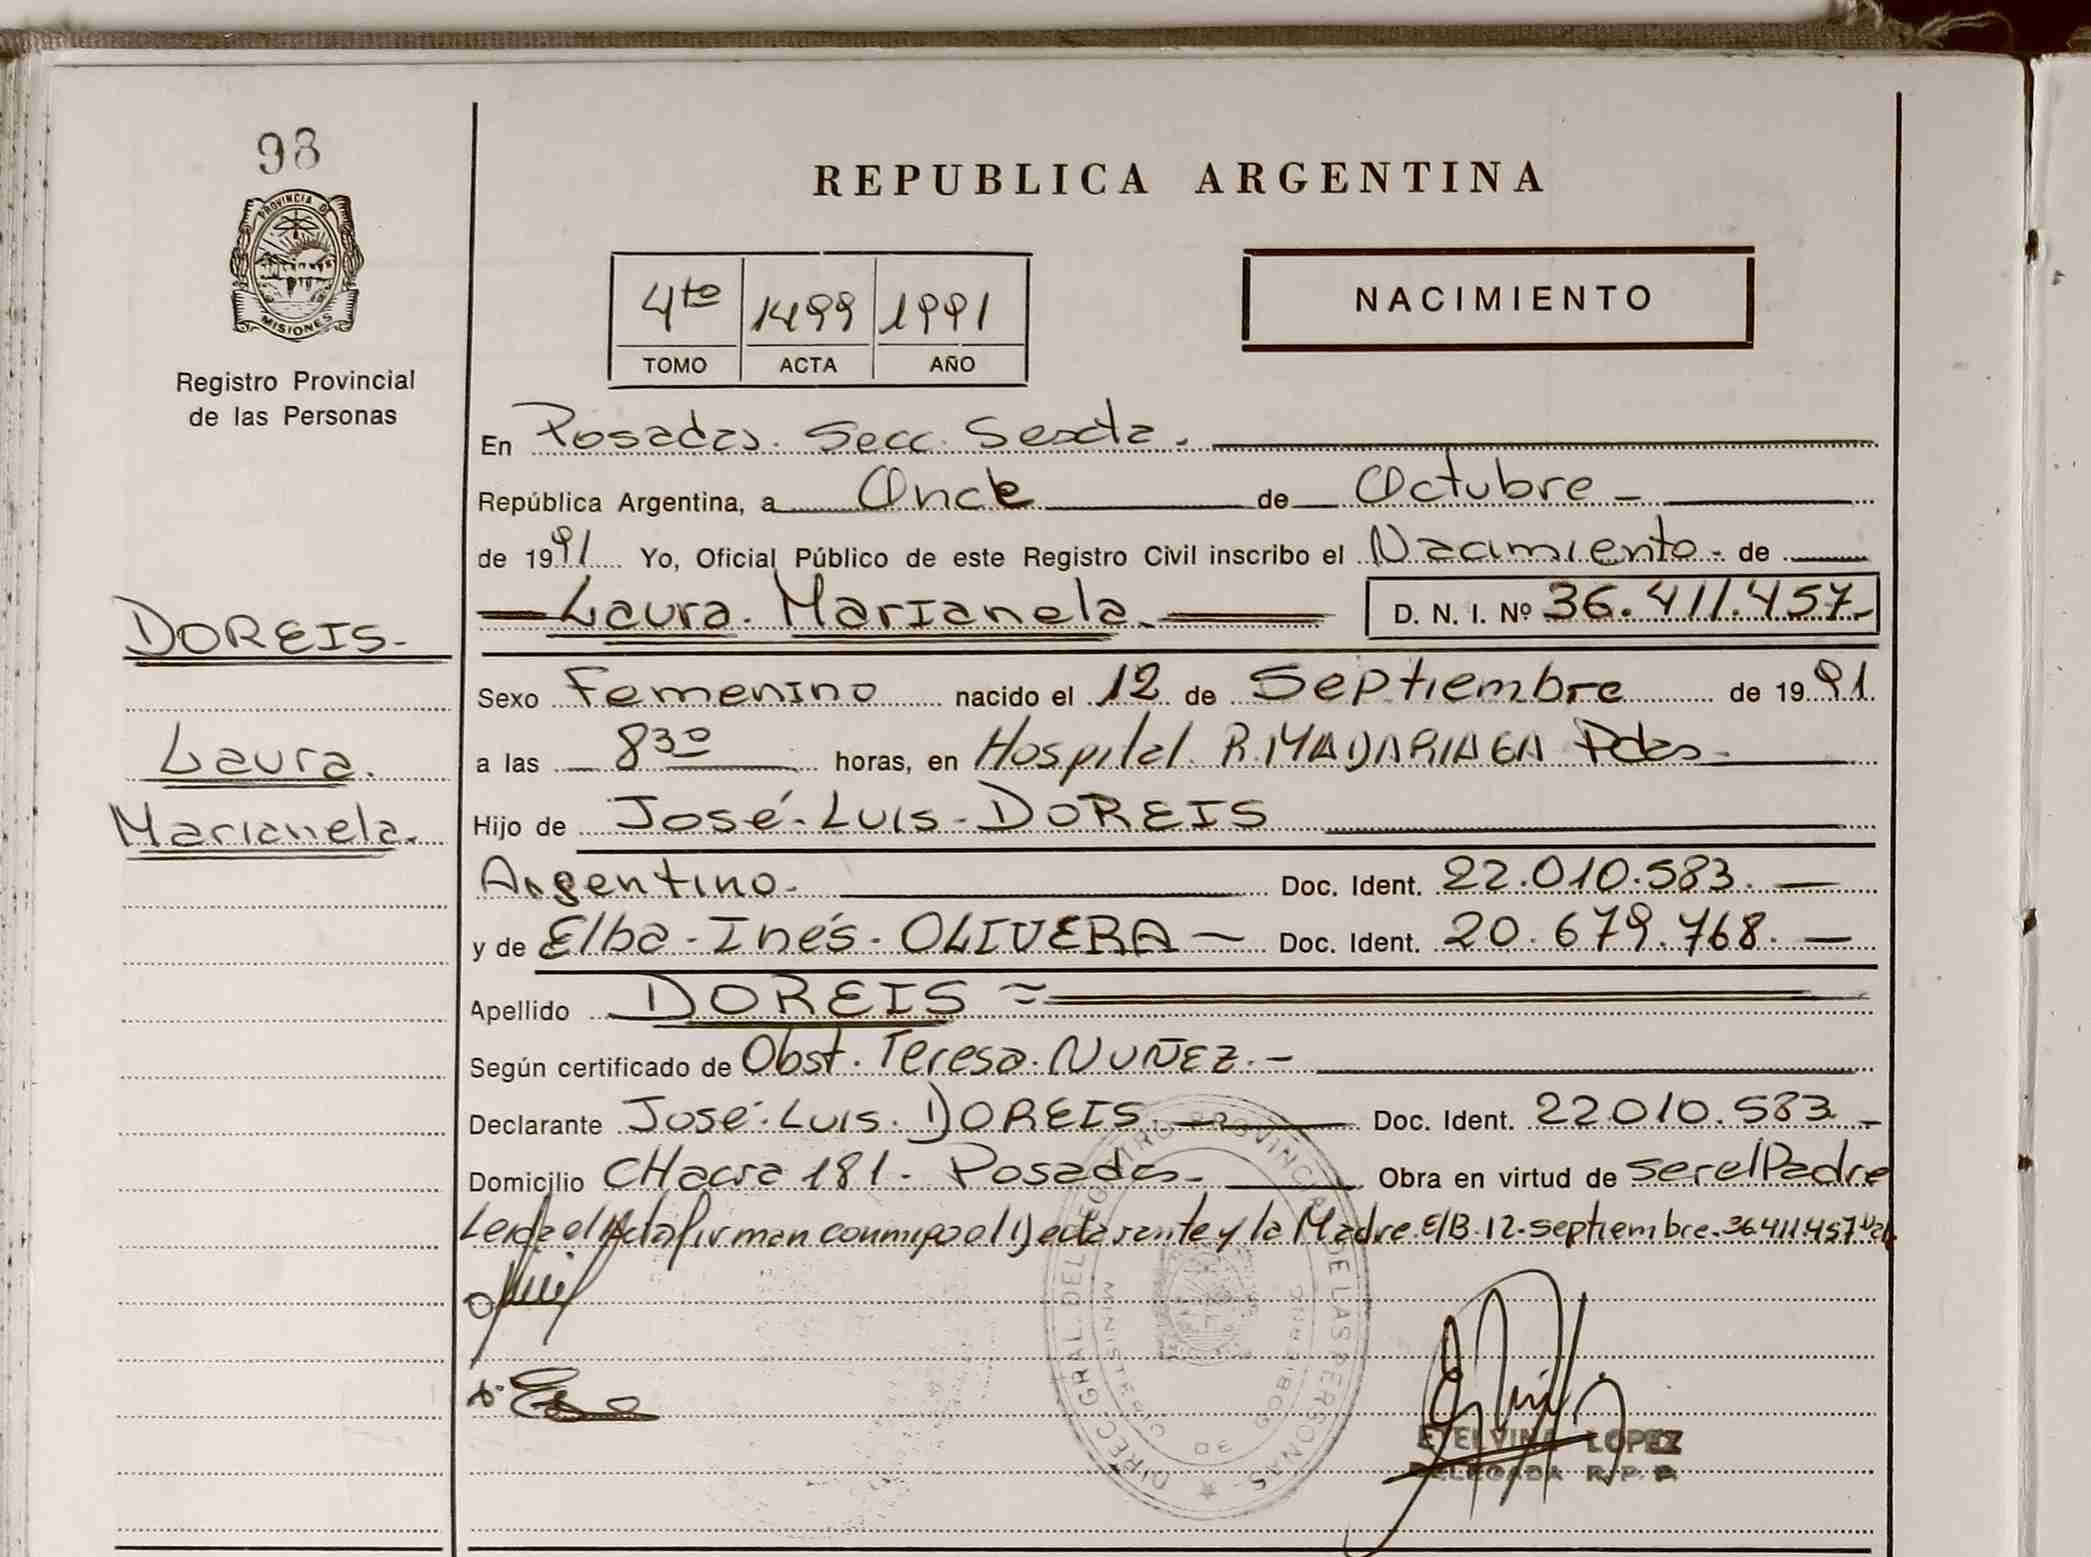 98
REPUBLICA ARGENTINA
PROVINCIA DE
MISIONES
Registro Provincial
de las Personas
4to 1499 1991
TOMO ACTA AÑO
NACIMIENTO
En Posadas. Secc. Sexta.
República Argentina, a Once de Octubre
de 1991 Yo, Oficial Público de este Registro Civil inscribo el Nacimiento - de
Laura. Marianela. D. N. I. Nº 36.411.457
DOREIS.
Laura.
Marianela.
Sexo Femenino nacido el 12 de Septiembre de 1991.
a las 8 30 horas, en Hospital R. MADARIAGA Pdas.
Hijo de José. Luis. DOREIS
Argentino. Doc. Ident. 22.010.583.
y de Elba. Inés. OLIVERA Doc. Ident. 20.679.768.
Apellido DOREIS
Según certificado de Obst. Teresa. NUÑEZ.
Declarante José. Luis. DOREIS Doc. Ident. 22010.583
Domicilio CHacra 181. Posadas Obra en virtud de ser el Padre
Leida el Acta firman conmigo el Declarante y la Madre. E/B. 12. septiembre. 36.411.457 Val
DIREC. GRAL DEL REGISTRO PROVINCIAL DE LAS PERSONAS
MINISTERIO DE GOBIERNO
ETELVINA LOPEZ
DELEGADA R. P. P.